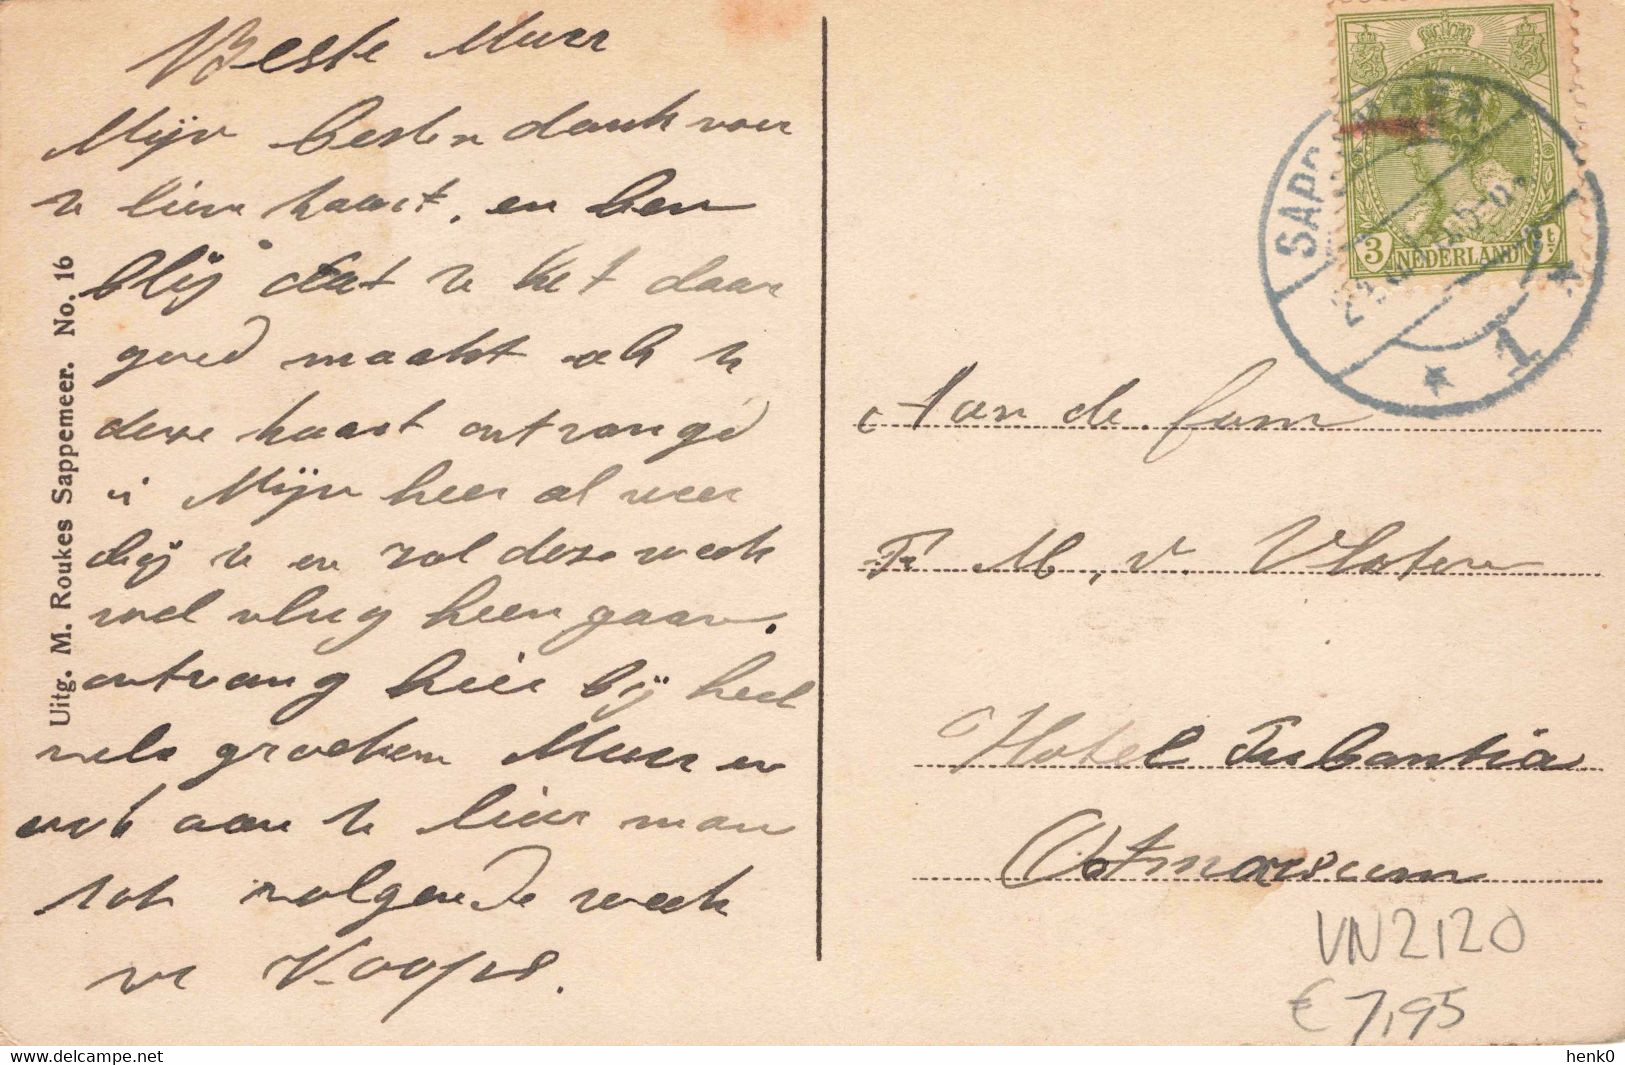 Beste Muer
Mijn besten dank voor
u lieve kaart. en ben
blij dat u het daar
goed maakt als u
deze kaart ontvangd
is Mijn heer al weer
bij u en zal deze week
wel vlug heen gaan.
ontvang hier bij heel
vele groeten Muer en
ook aan u lieve man
tot volgende week
Koops.
Uitg. M. Roukes Sappemeer. No. 16
3 ct
NEDERLAND
SAPPEMEER
1
Aan de fam
Fr M. v. Vloten
Hotel Tubantia
Ootmarsum
VN2120
€ 7,95
henk0